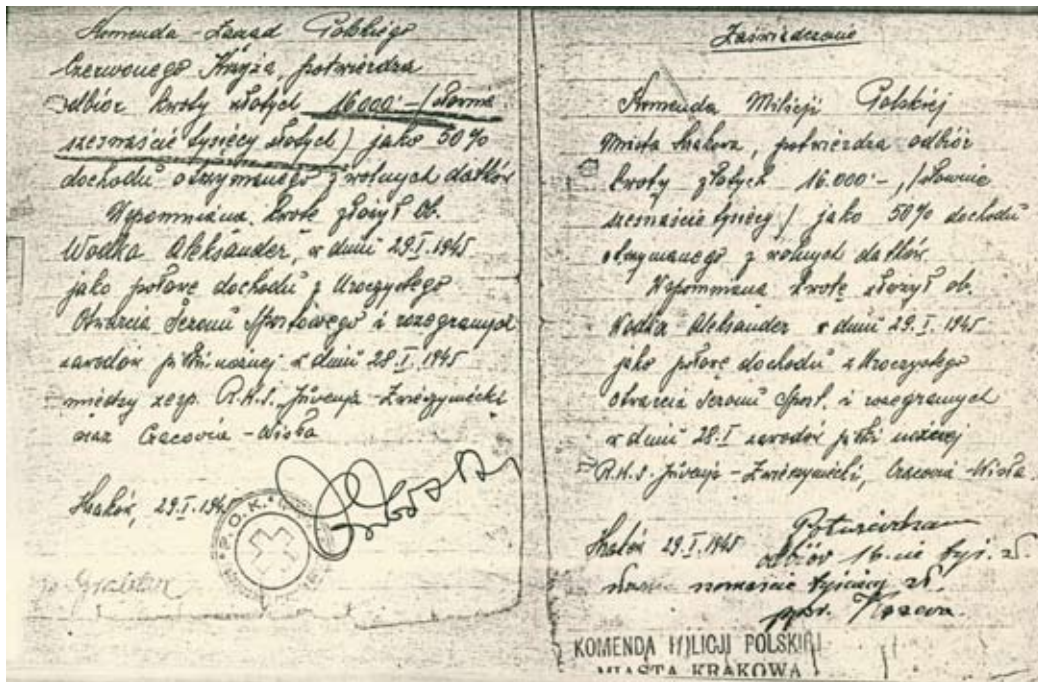 Komenda - Zarząd Polskiego
Czerwonego Krzyża, potwierdza
odbiór kwoty złotych 16000·- / słownie
szesnaście tysięcy złotych) jako 50%
dochodu otrzymanego z wolnych datków
Wspomnianą kwotę złożył Ob.
Wodka Aleksander, w dniu 29.I.1945
jako połowę dochodu z Uroczystego
Otwarcia Sezonu Sportowego i rozegranych
zawodów piłki nożnej w dniu 28.I.1945
między zesp. R.K.S. Juvenja - Zwierzyniecki
oraz Cracovia - Wisła
Kraków, 29.I.1945
P.C.K.
Zaświadczenie
Komenda Milicji Polskiej
Miasta Krakowa, potwierdza odbiór
kwoty złotych 16.000·-, / słownie
szesnaście tysięcy / jako 50% dochodu
otrzymanego z wolnych datków.
Wspomnianą kwotę złożył ob.
Wodka Aleksander w dniu 29.I.1945
jako połowę dochodu z Uroczystego
otwarcia Sezonu Sport. i rozegranych
w dniu 28.I zawodów piłki nożnej
R.K.S. Juvenja - Zwierzyniecki, Cracovia - Wisła.
Kraków 29.I.1945
odbiór 16-cie tysi. zł.
tysięcy zł.
ppor.
KOMENDA MILICJI POLSKIEJ
MIASTA KRAKOWA